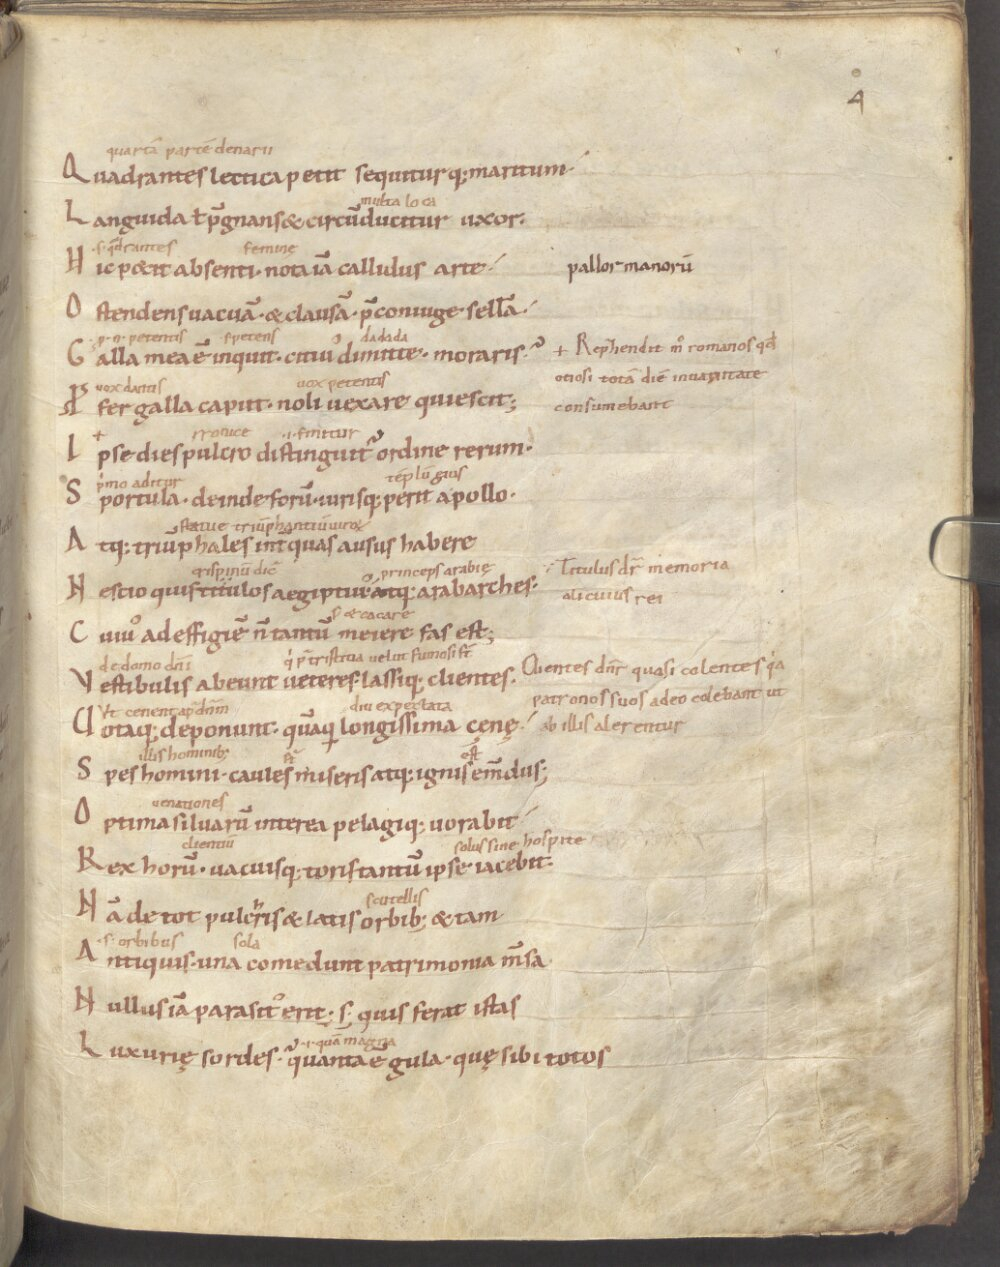 4
quartā partē denarii
Quadrantes lectica petit sequiturq; maritum
multa loca
Languida ł p̄gnans & circūducitur uxor.
.s. q̄drantes feminę
Hic petit absenti. nota iā callidus arte pallor manorū
Ostendens uacuā. & clausā. p̄ coniuge. sellā.
petentis petens dadada
Galla mea ē inquit. citiu᷒ dimitte. moraris. + Rep̄hendit romanos qd̄
otiosi totā diē in uanitate
uox dantis uox petentis
Profer galla caput. noli uexare quiescit; consumebant
+ .i. finitur
Ipse dies pulcro distinguitur ordine rerum.
p̄mo aditur tēplū
Sportula. deinde forū. iurisq; perit apollo.
statue triūphantiū
Atq; triūphales int̄ quas ausus habere
crispinū dic̄ princeps arabię Titulus dr̄ memoria
Nescio quis titulos aegiptius atq; arabarches. alicuius rei
.s. & cacare
Cuiu᷒ ad effigiē n̄ tantū meiere fas est;
de domo dn̄i p̄ tristitia uelut fumosi st̄
Vestibulis abeunt ueteres lassiq; clientes. Clientes dn̄r quasi colentes qa
patronos suos adeo colebant ut
Vt cenent ap̄ dn̄m diu expectata
Uotaq; deponunt. quāq longissima cęnę ab illis alerentur
illis hominib; est
Spes homini. caules miseris atq; ignis emendus;
uenationes
Optima siluarū interea pelagiq; uorabit
clientiū solus sine hospite
Rex horū. uacuisq; toris tantū ipse iacebit.
scutellis
Nā de tot pulchris & latis orbib; & tam
.s. orbibus sola
Antiquis. una comedunt patrimonia m̄sa
Nullus iā parasitus erit. s; quis ferat istas
.i. quā magna
Luxurię sordes. quanta ē gula. quę sibi totos